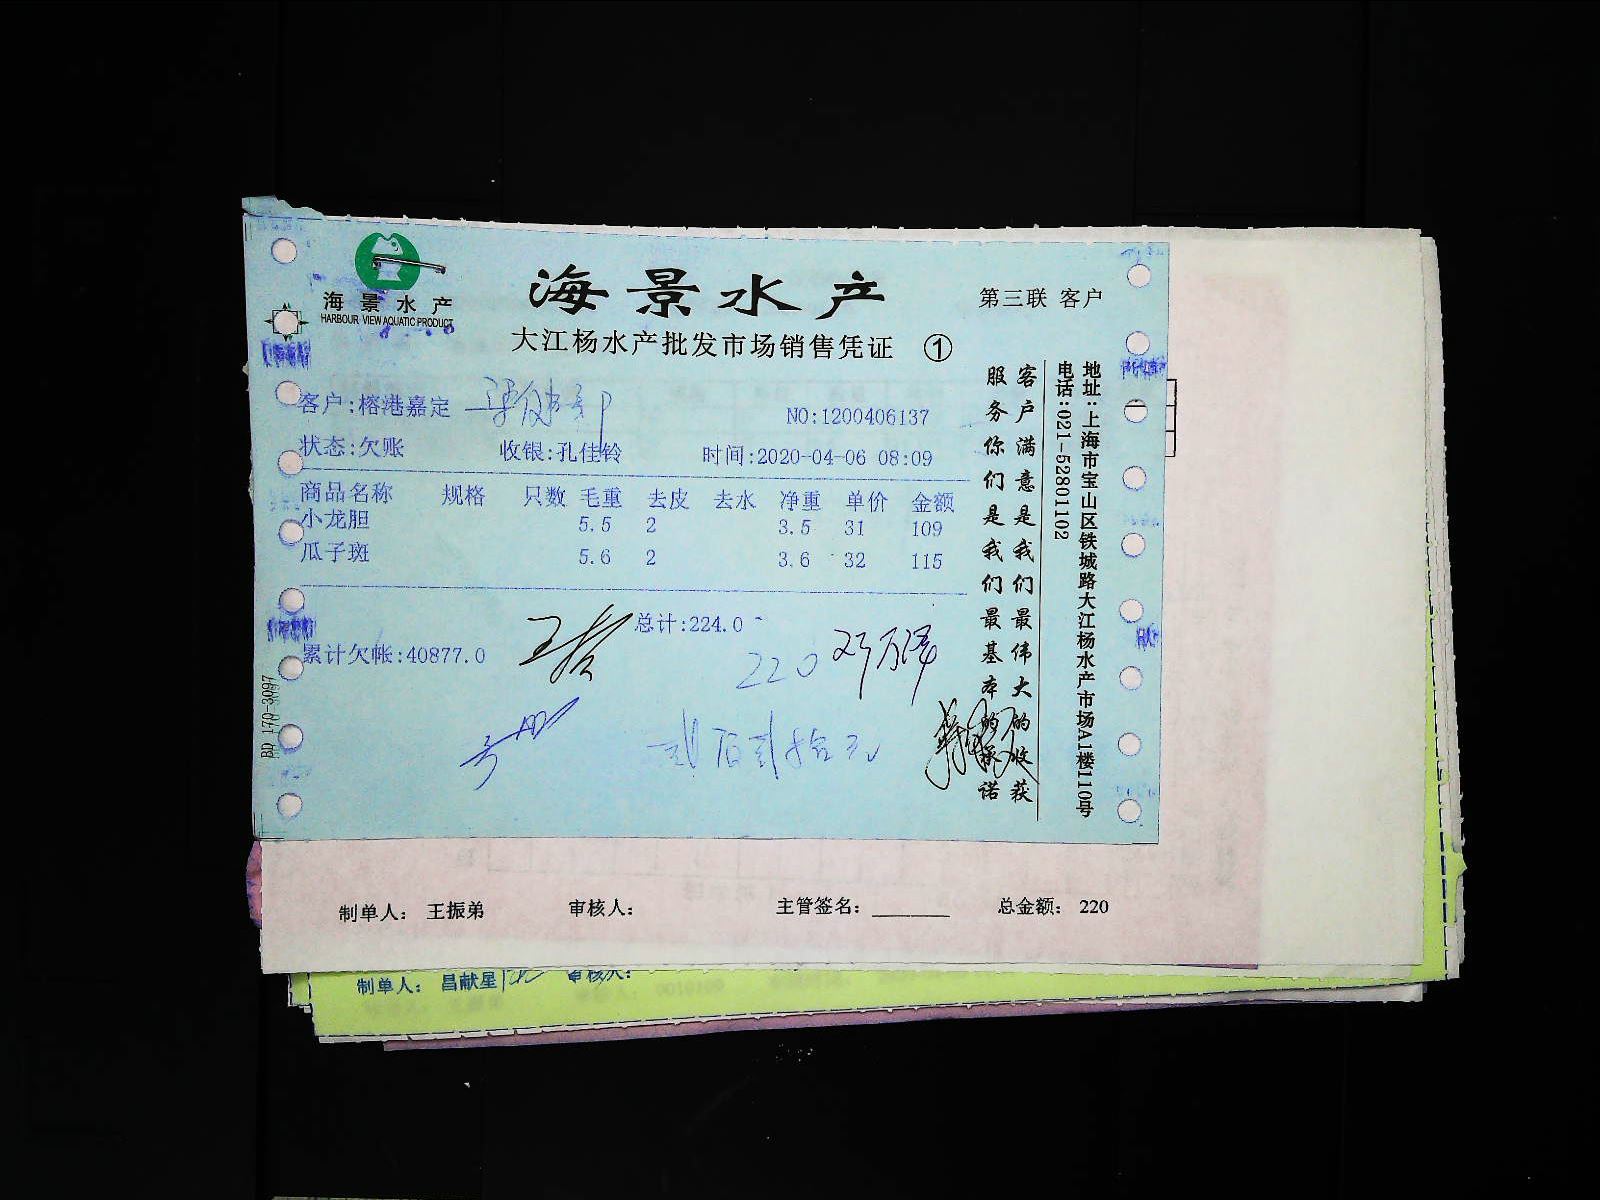 海景水产
HARBOUR VIEW AQUATIC PRODUCT
海景水产
第三联 客户
大江杨水产批发市场销售凭证 ①
客户:榕港嘉定
NO:1200406137
状态:欠账 收银:孔佳铃 时间:2020-04-06 08:09
商品名称 规格 只数 毛重 去皮 去水 净重 单价 金额
小龙胆 5.5 2 3.5 31 109
瓜子斑 5.6 2 3.6 32 115
总计:224.0
累计欠帐:40877.0
220
贰佰贰拾元
客户满意是我们最伟大的收获
服务你们是我们最基本的承诺
地址:上海市宝山区铁城路大江杨水产市场A1楼110号
电话:021-52801102
BD 170-3097
制单人: 王振弟 审核人: 主管签名: 总金额: 220
制单人: 昌献星 审核人: